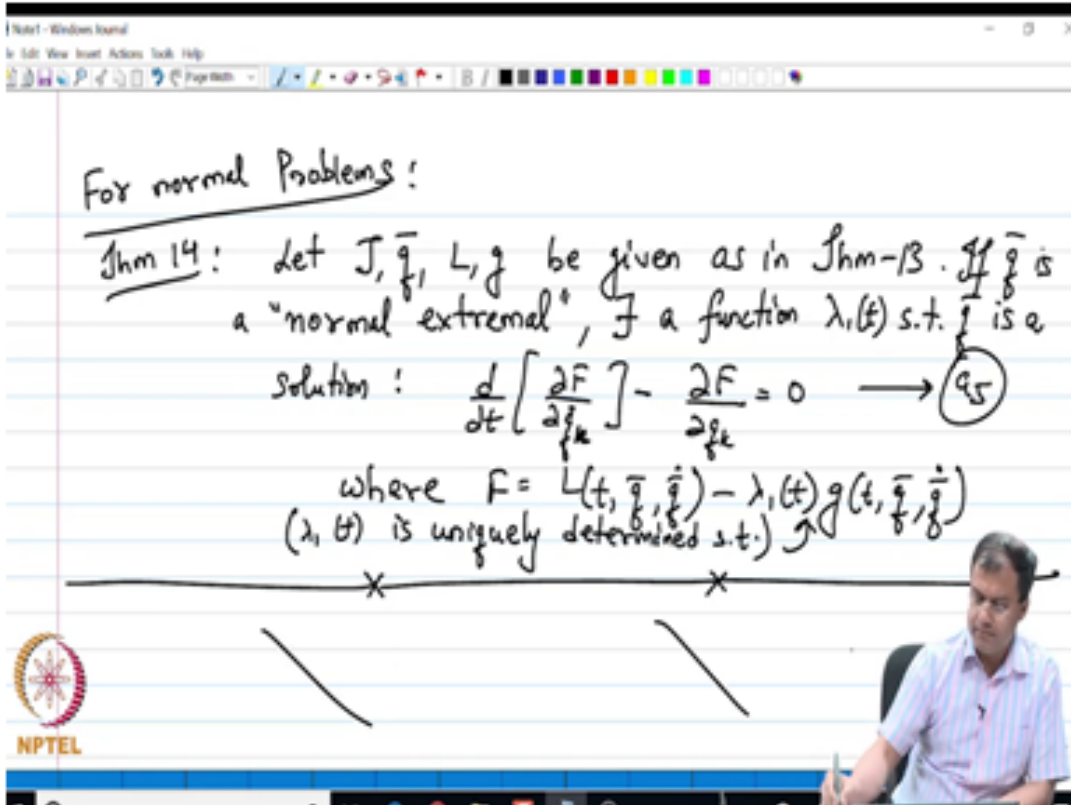 Note1 - Windows Journal
Edit View Insert Actions Tools Help
Page Width
B I
For normal Problems :
Thm 14 : Let J, q̄, L, g be given as in Thm-13. If q̄ is
a "normal extremal", ∃ a function λ₁(t) s.t. q̄ is a
solution : d/dt [∂F/∂q̇ₖ] - ∂F/∂qₖ = 0 → (a5)
where F = L(t, q̄, q̄̇) - λ₁(t) g(t, q̄, q̄̇)
(λ₁(t) is uniquely determined s.t.)
NPTEL